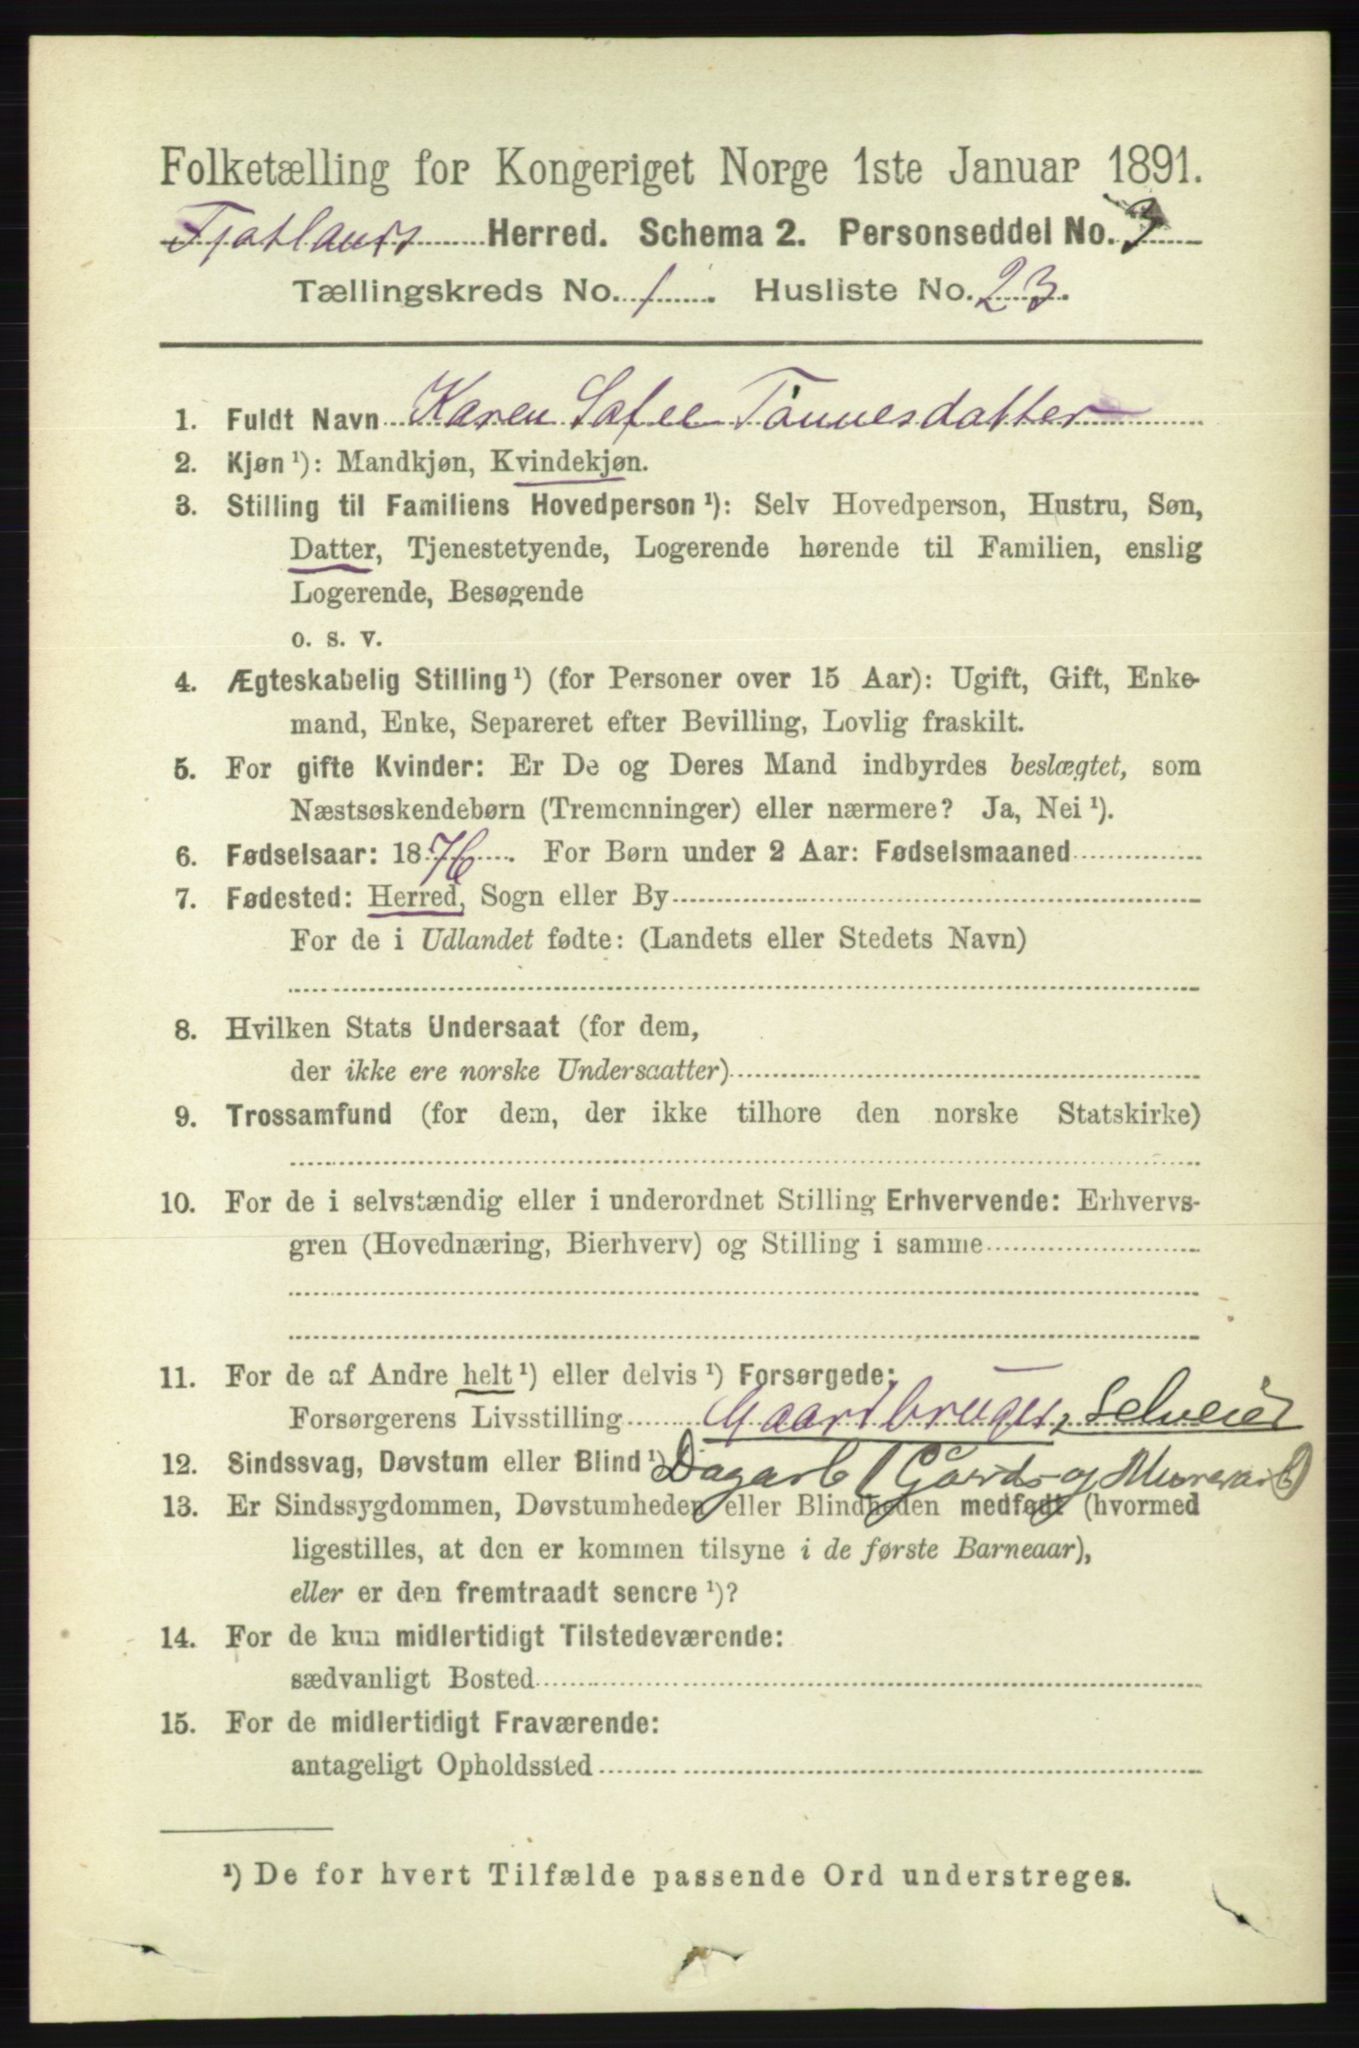 Folketælling for Kongeriget Norge 1ste Januar 1891.
Fjotlands Herred. Schema 2. Personseddel No. 3
Tællingskreds No. 1. Husliste No. 23.
1. Fuldt Navn Karen Sofie Tønnesdatter
2. Kjøn ¹): Mandkjøn, Kvindekjøn.
3. Stilling til Familiens Hovedperson ¹): Selv Hovedperson, Hustru, Søn,
Datter, Tjenestetyende, Logerende hørende til Familien, enslig
Logerende, Besøgende
o. s. v.
4. Ægteskabelig Stilling ¹) (for Personer over 15 Aar): Ugift, Gift, Enke-
mand, Enke, Separeret efter Bevilling, Lovlig fraskilt.
5. For gifte Kvinder: Er De og Deres Mand indbyrdes beslægtet, som
Næstsøskendebørn (Tremenninger) eller nærmere? Ja, Nei ¹).
6. Fødselsaar: 1876. For Børn under 2 Aar: Fødselsmaaned
7. Fødested: Herred, Sogn eller By
For de i Udlandet fødte: (Landets eller Stedets Navn)
8. Hvilken Stats Undersaat (for dem,
der ikke ere norske Undersaatter)
9. Trossamfund (for dem, der ikke tilhore den norske Statskirke)
10. For de i selvstændig eller i underordnet Stilling Erhvervende: Erhvervs-
gren (Hovednæring, Bierhverv) og Stilling i samme
11. For de af Andre helt ¹) eller delvis ¹) Forsørgede:
Forsørgerens Livsstilling Gaardbruger, Selveier
12. Sindssvag, Døvstum eller Blind ¹) Dagarb (Gaards og Murerarb)
13. Er Sindssygdommen, Døvstumheden eller Blindheden medfødt (hvormed
ligestilles, at den er kommen tilsyne i de første Barneaar),
eller er den fremtraadt senere ¹)?
14. For de kun midlertidigt Tilstedeværende:
sædvanligt Bosted
15. For de midlertidigt Fraværende:
antageligt Opholdssted
¹) De for hvert Tilfælde passende Ord understreges.